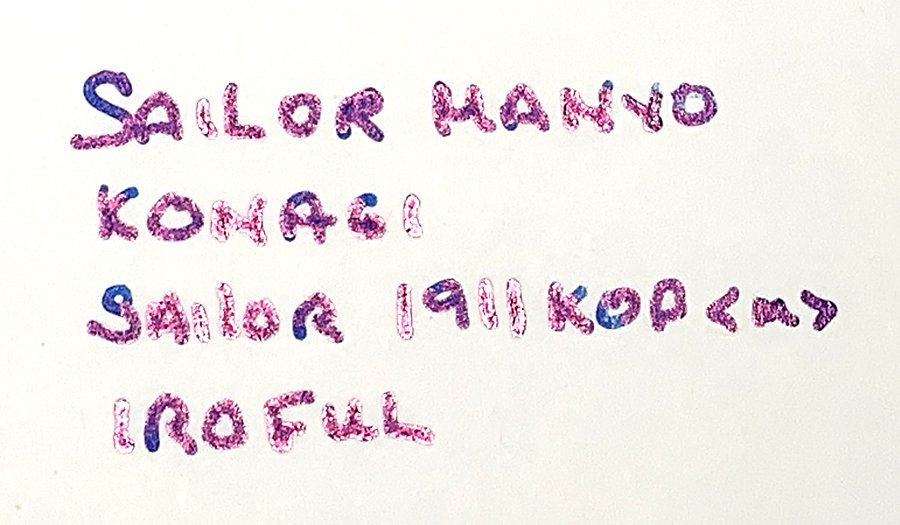 SAILOR MANYO
KONAGI
SAILOR 1911 KOP <M>
IROFUL